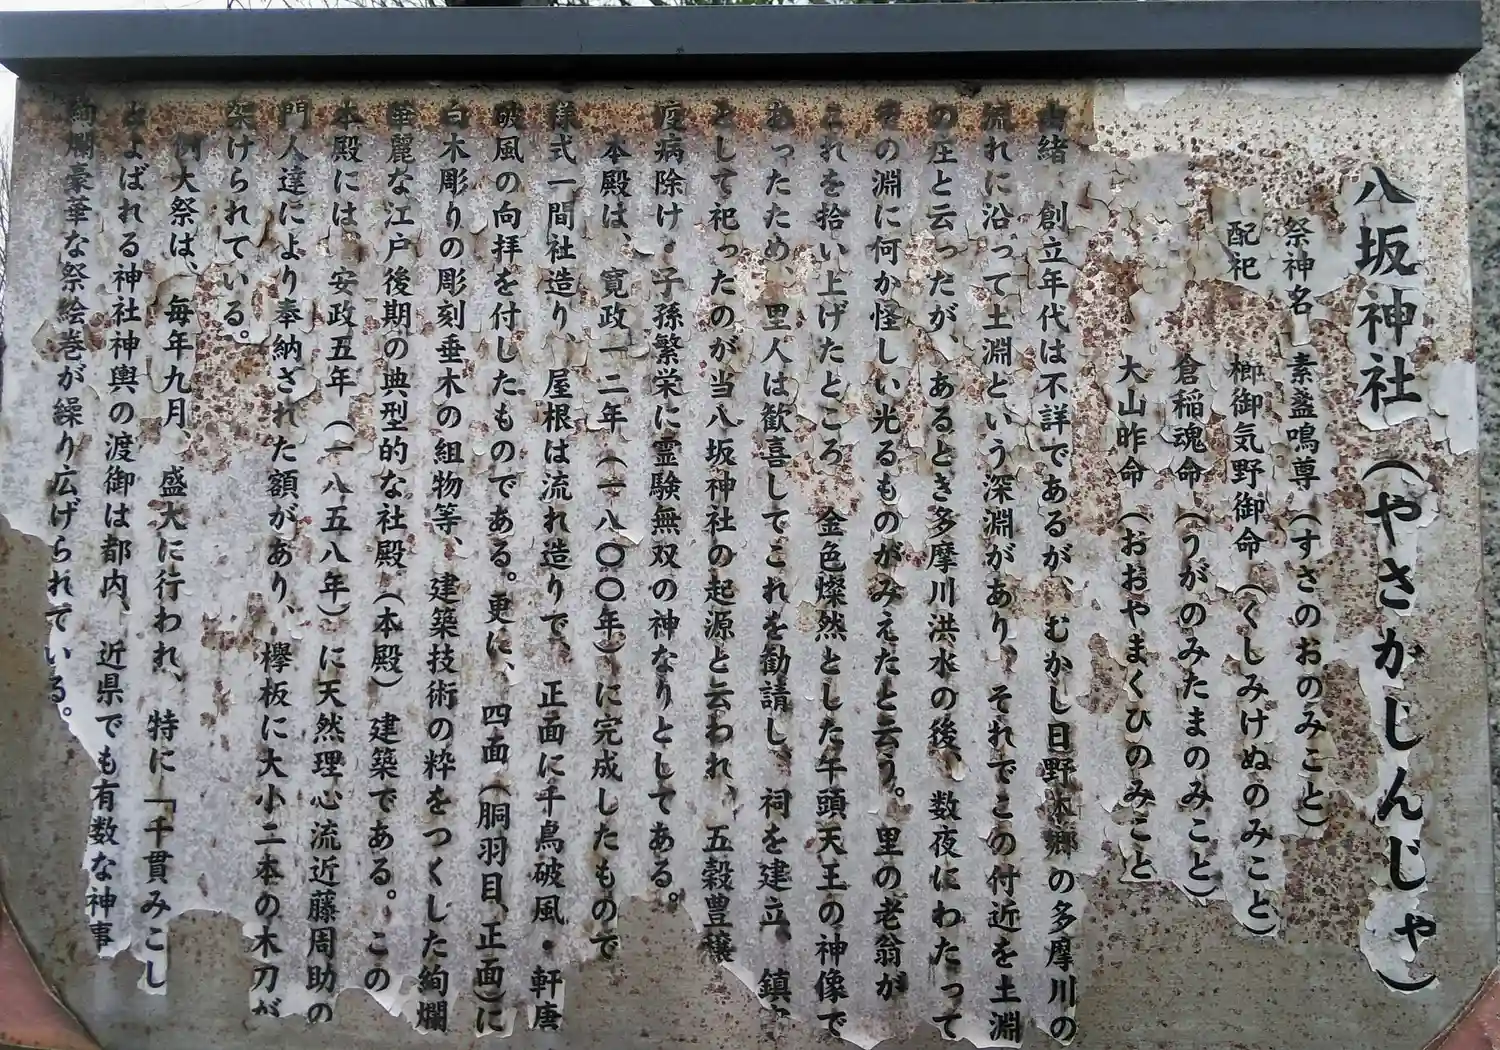 八坂神社（やさかじんじゃ）
祭神名　素盞鳴尊（すさのおのみこと）
配祀　櫛御気野御命（くしみけぬのみこと）
倉稲魂命（うがのみたまのみこと）
大山昨命（おおやまくひのみこと
由緒　創立年代は不詳であるが、むかし日野本郷の多摩川の
流れに沿って土淵という深淵があり、それでこの付近を土淵
の庄と云ったが、あるとき多摩川洪水の後、数夜にわたって
その淵に何か怪しい光るものがみえたと云う。里の老翁が
これを拾い上げたところ、金色燦然とした午頭天王の神像で
あったため、里人は歓喜してこれを勧請し、祠を建立、鎮守
として祀ったのが当八坂神社の起源と云われ、五穀豊穣
疫病除け・子孫繁栄に霊験無双の神なりとしてある。
本殿は、寛政一二年（一八〇〇年）に完成したもので
様式一間社造り、屋根は流れ造りで、正面に千鳥破風・軒唐
破風の向拝を付したものである。更に、四面（胴羽目、正面）に
白木彫りの彫刻垂木の組物等、建築技術の粋をつくした絢爛
華麗な江戸後期の典型的な社殿（本殿）建築である。この
本殿には、安政五年（一八五八年）に天然理心流近藤周助の
門人達により奉納された額があり、欅板に大小二本の木刀が
架けられている。
例大祭は、毎年九月、盛大に行われ、特に「千貫みこし
とよばれる神社神輿の渡御は都内、近県でも有数な神事
絢爛豪華な祭絵巻が繰り広げられている。